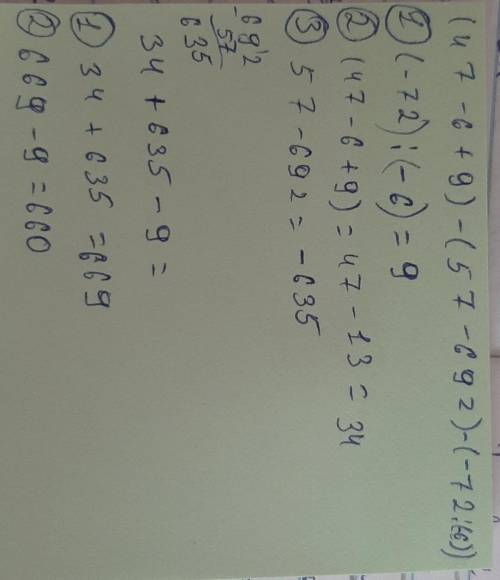 (47 - 6 + 9) - (57 - 692) - (-72:(-6))
① (-72):(-6) = 9
② (47 - 6 + 9) = 47 - 13 = 34
③ 57 - 692 = -635
-692
57
635
34 + 635 - 9 =
① 34 + 635 = 669
② 669 - 9 = 660